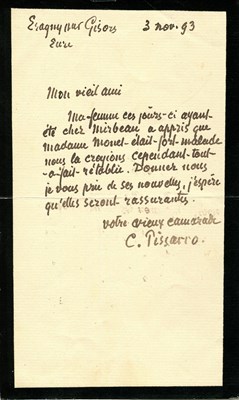 Eragny sur Gisors 3 nov. 93
Eure
Mon vieil ami
Ma femme ces jours-ci ayant
été chez Mirbeau a appris que
madame Monet était fort malade
nous la croyions cependant tout-
-à-fait rétablie. Donner nous
je vous prie de ses nouvelles, j'espère
qu'elles seront rassurantes.
votre vieux camarade
C. Pissarro.